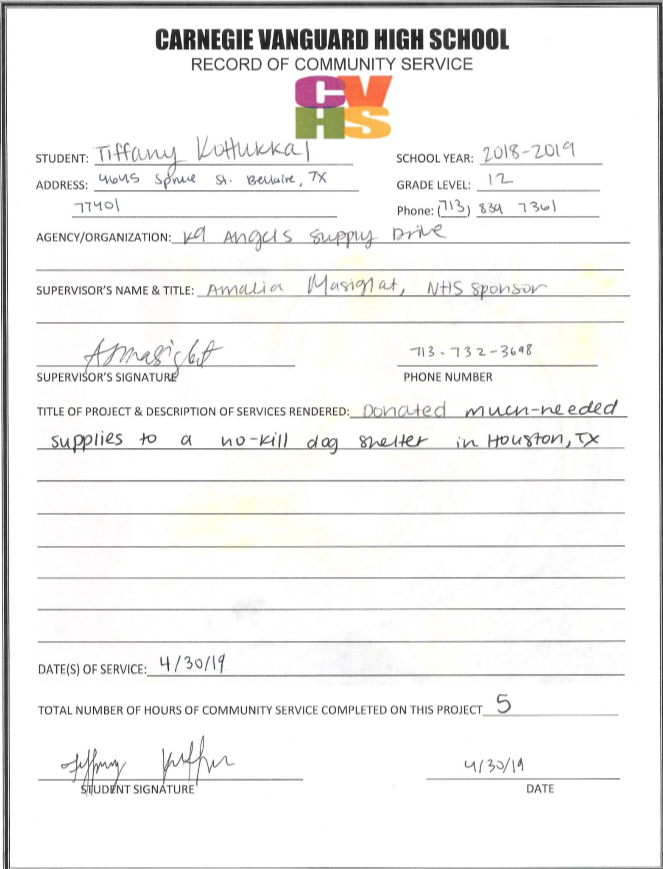 CARNEGIE VANGUARD HIGH SCHOOL
RECORD OF COMMUNITY SERVICE
CV
HS
STUDENT: Tiffany Kottukkal SCHOOL YEAR: 2018-2019
ADDRESS: 4645 Spruce St. Bellaire, TX GRADE LEVEL: 12
77401 Phone: (713) 839 7361
AGENCY/ORGANIZATION: K9 Angels Supply Drive
SUPERVISOR'S NAME & TITLE: Amalia Masiglat, NHS Sponsor
713-732-3698
SUPERVISOR'S SIGNATURE PHONE NUMBER
TITLE OF PROJECT & DESCRIPTION OF SERVICES RENDERED: Donated much-needed
supplies to a no-kill dog shelter in Houston, TX
DATE(S) OF SERVICE: 4/30/19
TOTAL NUMBER OF HOURS OF COMMUNITY SERVICE COMPLETED ON THIS PROJECT 5
4/30/19
STUDENT SIGNATURE DATE